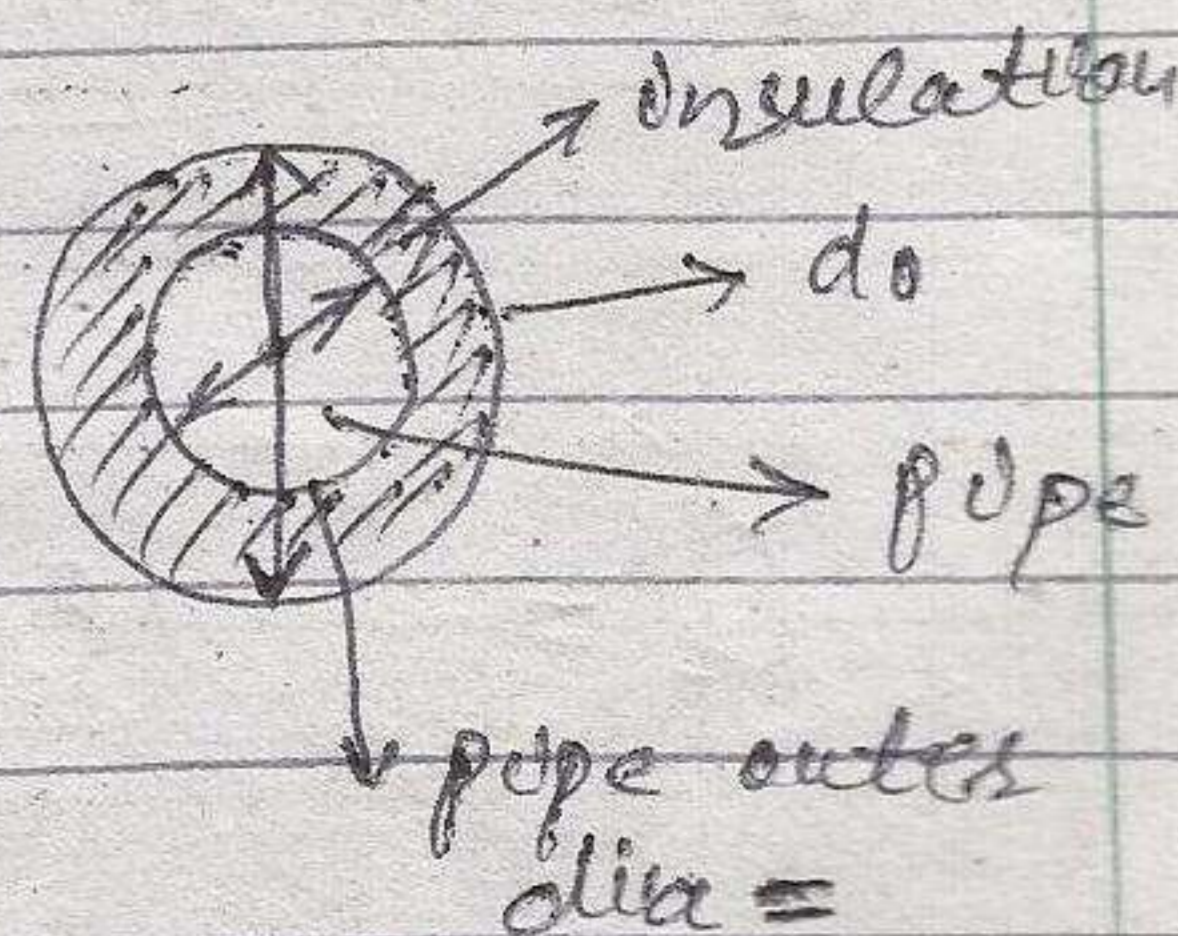 insulation
do
pipe
pipe outer
dia =